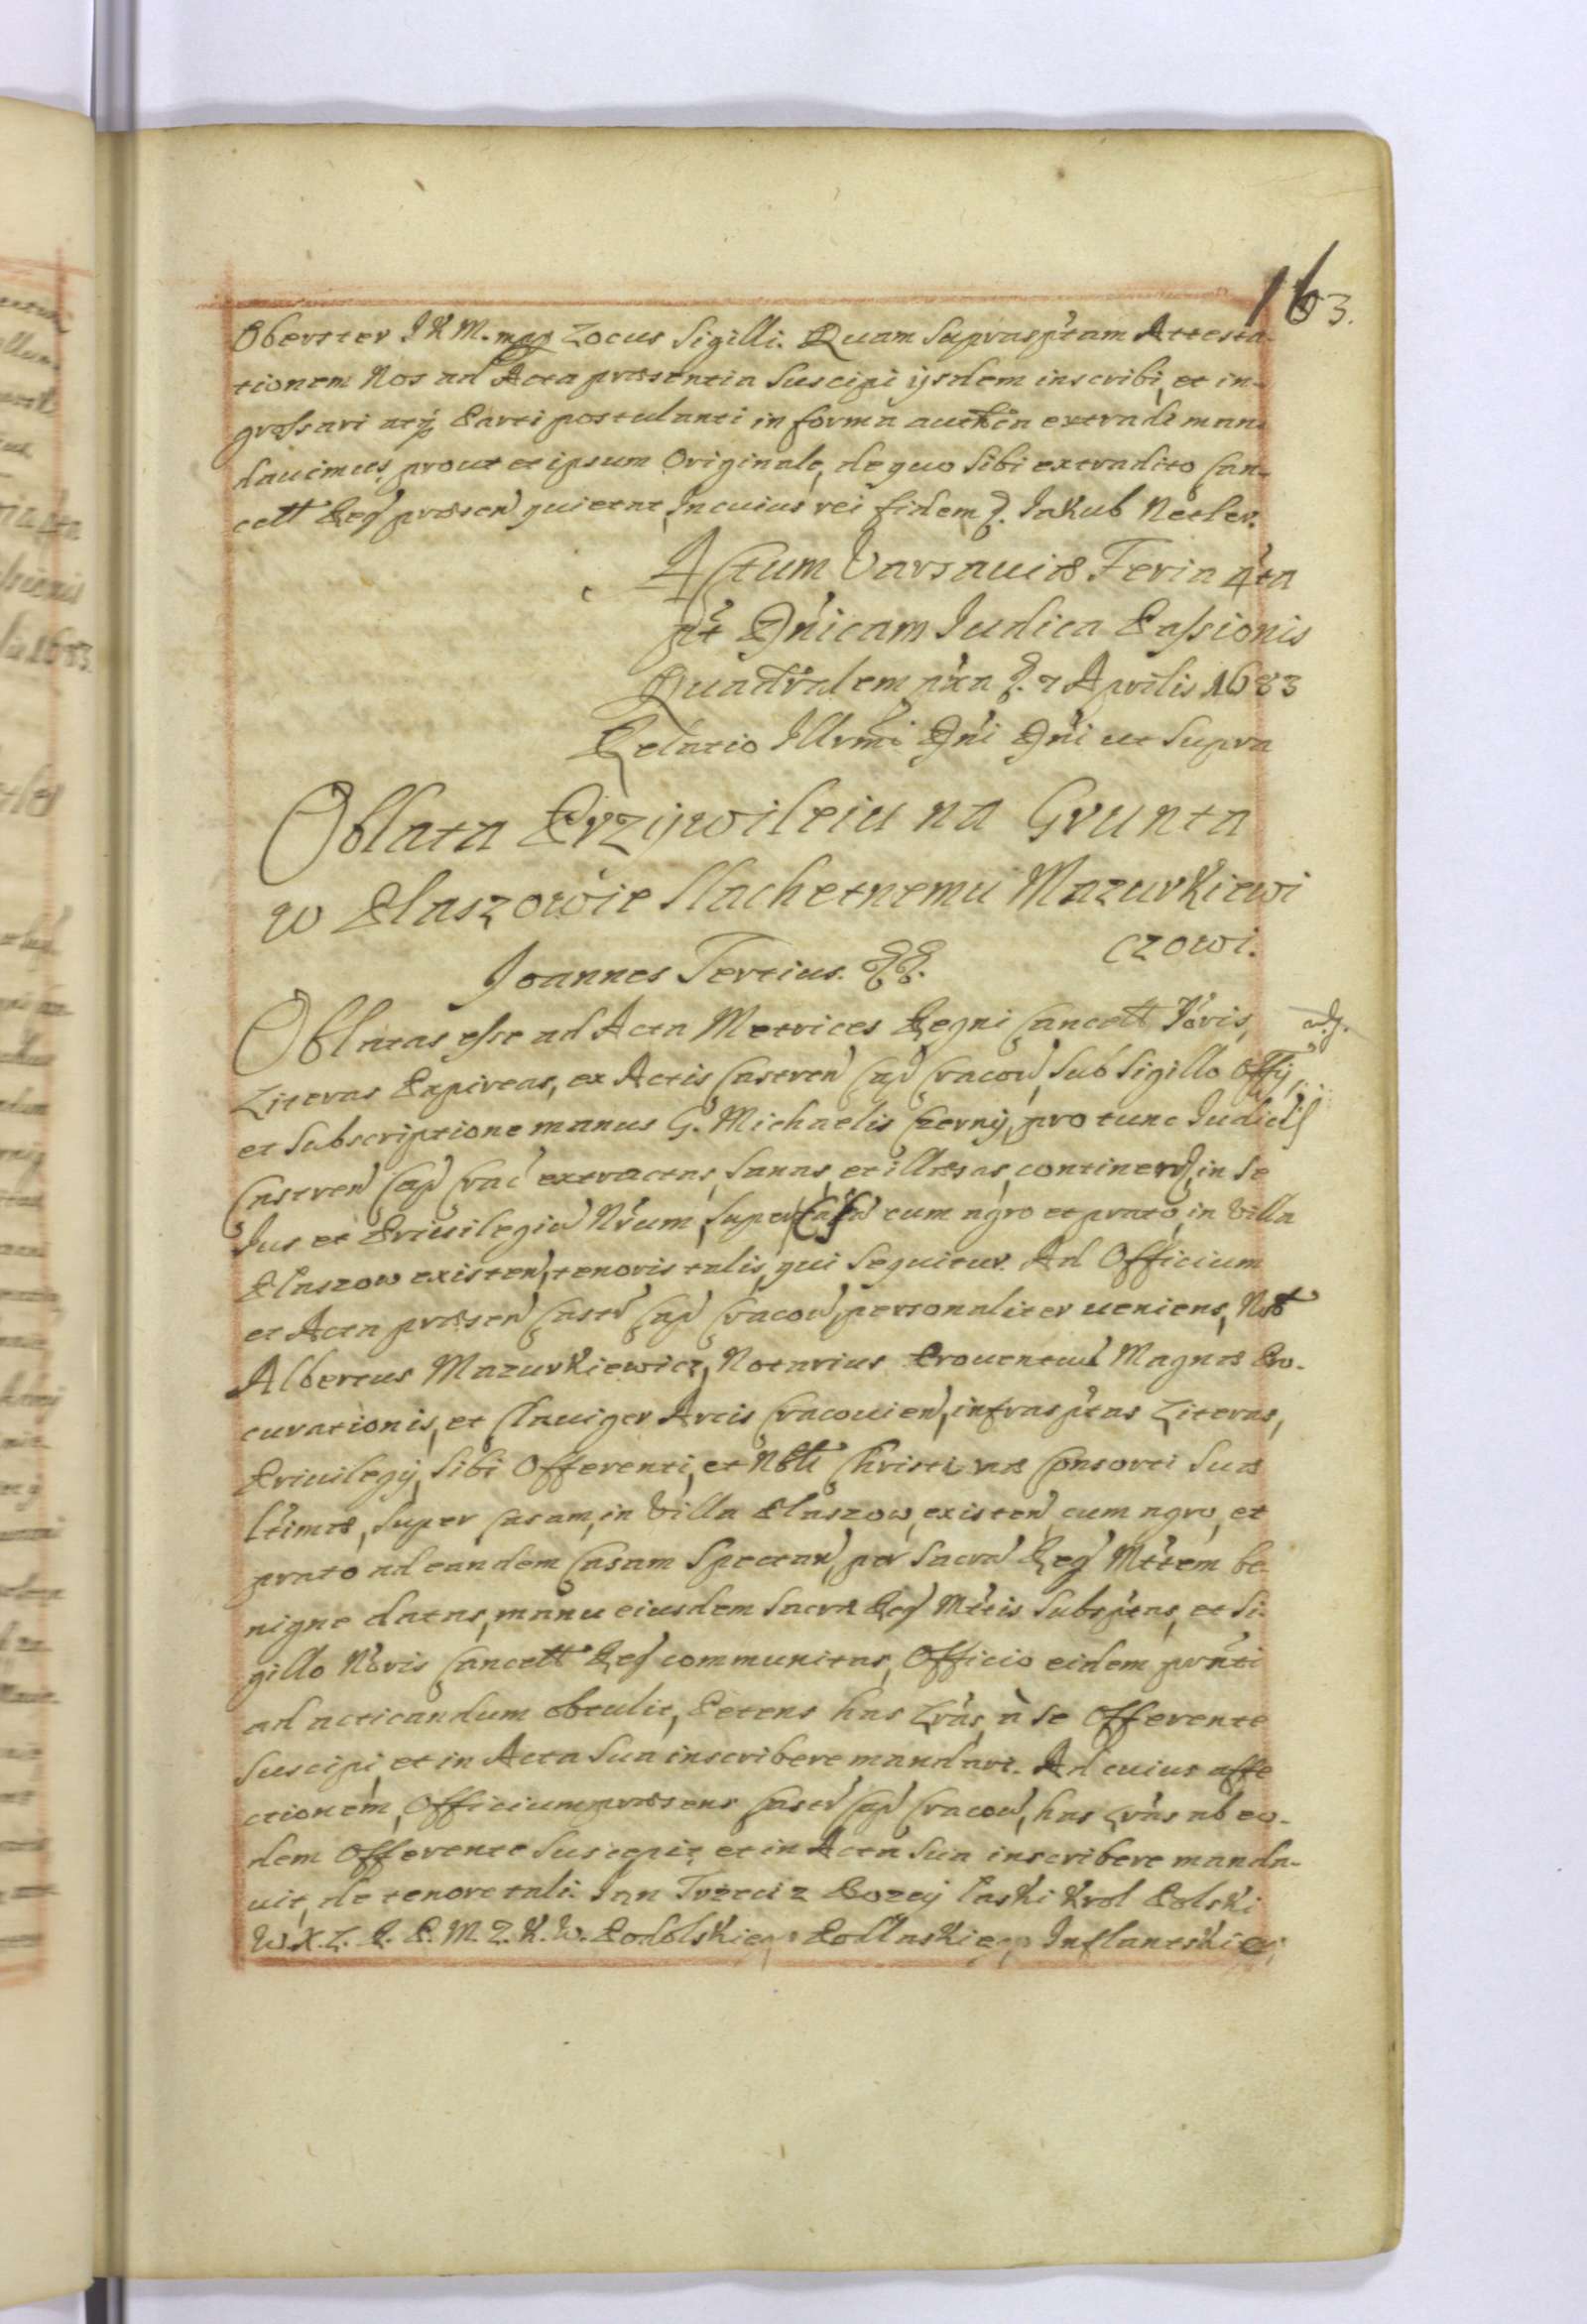 163.
Oberster J K M. mpp Locus Sigilli. Quam suprasptam Attesta-
tionem Nos ad Acta præsentia suscipi ijsdem inscribi, et in-
grossari atq Parti postulanti in forma authen extradi man-
dauimus, prout et ipsum Originale, de quo sibi extradito Can-
cell Reg præsen quietat, In cuius rei fidem &. Jakub Netler.
Actum Varsauiæ Feria 4ta
pt Dnicam Judica Passionis
Quadralem pxa &. 7 Aprilis 1683
Relatio Illrmi Dni Dni ut supra
Oblata Przywileiu na Grunta
w Płaszowie Slachetnemu Mazurkiewi
czowi.
Joannes Tertius. &&.
Oblatas esse ad Acta Metrices Regni Cancell Nris,
Literas Papireas, ex Actis Castren Cap Cracov, sub Sigillo Offij
et Subscriptione manus G. Michaelis Czerny, pro tunc Judicis
Castren Cap Crac extractas, sanas, et illæsas, continen, in se
Jus et Priuilegiu Nrum, super Casa cum agro et prato, in Villa
Płaszow existen, tenoris talis, qui sequitur. Ad Officium
et Acta præsen Castr Cap Cracov, personaliter ueniens, Nob
Albertus Mazurkiewicz, Notarius Prouentuu Magnæ Pro-
curationis, et Clauiger Arcis Cracouien, infrasptas Literas,
Priuilegij, sibi Offerenti, et Nbli Christinæ Consorti suæ
ltimæ, super Casam, in Villa Płaszow, existen, cum agro, et
prato ad eandem Casam Spectan, per Sacra Reg Mttem be-
nigne datas, manu eiusdem Sacræ Reg Mttis Subsptas, et Si-
gillo Nris Cancell Reg communitas, Officio eidem prnti
ad acticandum obtulit, Petens has Lras à se Offerente
suscipi, et in Acta sua inscribere mandari. Ad cuius affe
ctionem, Officium præsens Castr Cap Cracov, has Lras ab eo-
dem Offerente suscepit, et in Acta sua inscribere manda-
uit, de tenore tali. Jan Trzeci z Bozey łaski Krol Polski
W. X. L. R. P. M. Z. K. W. Podolskie Podlaskie Inflantskie